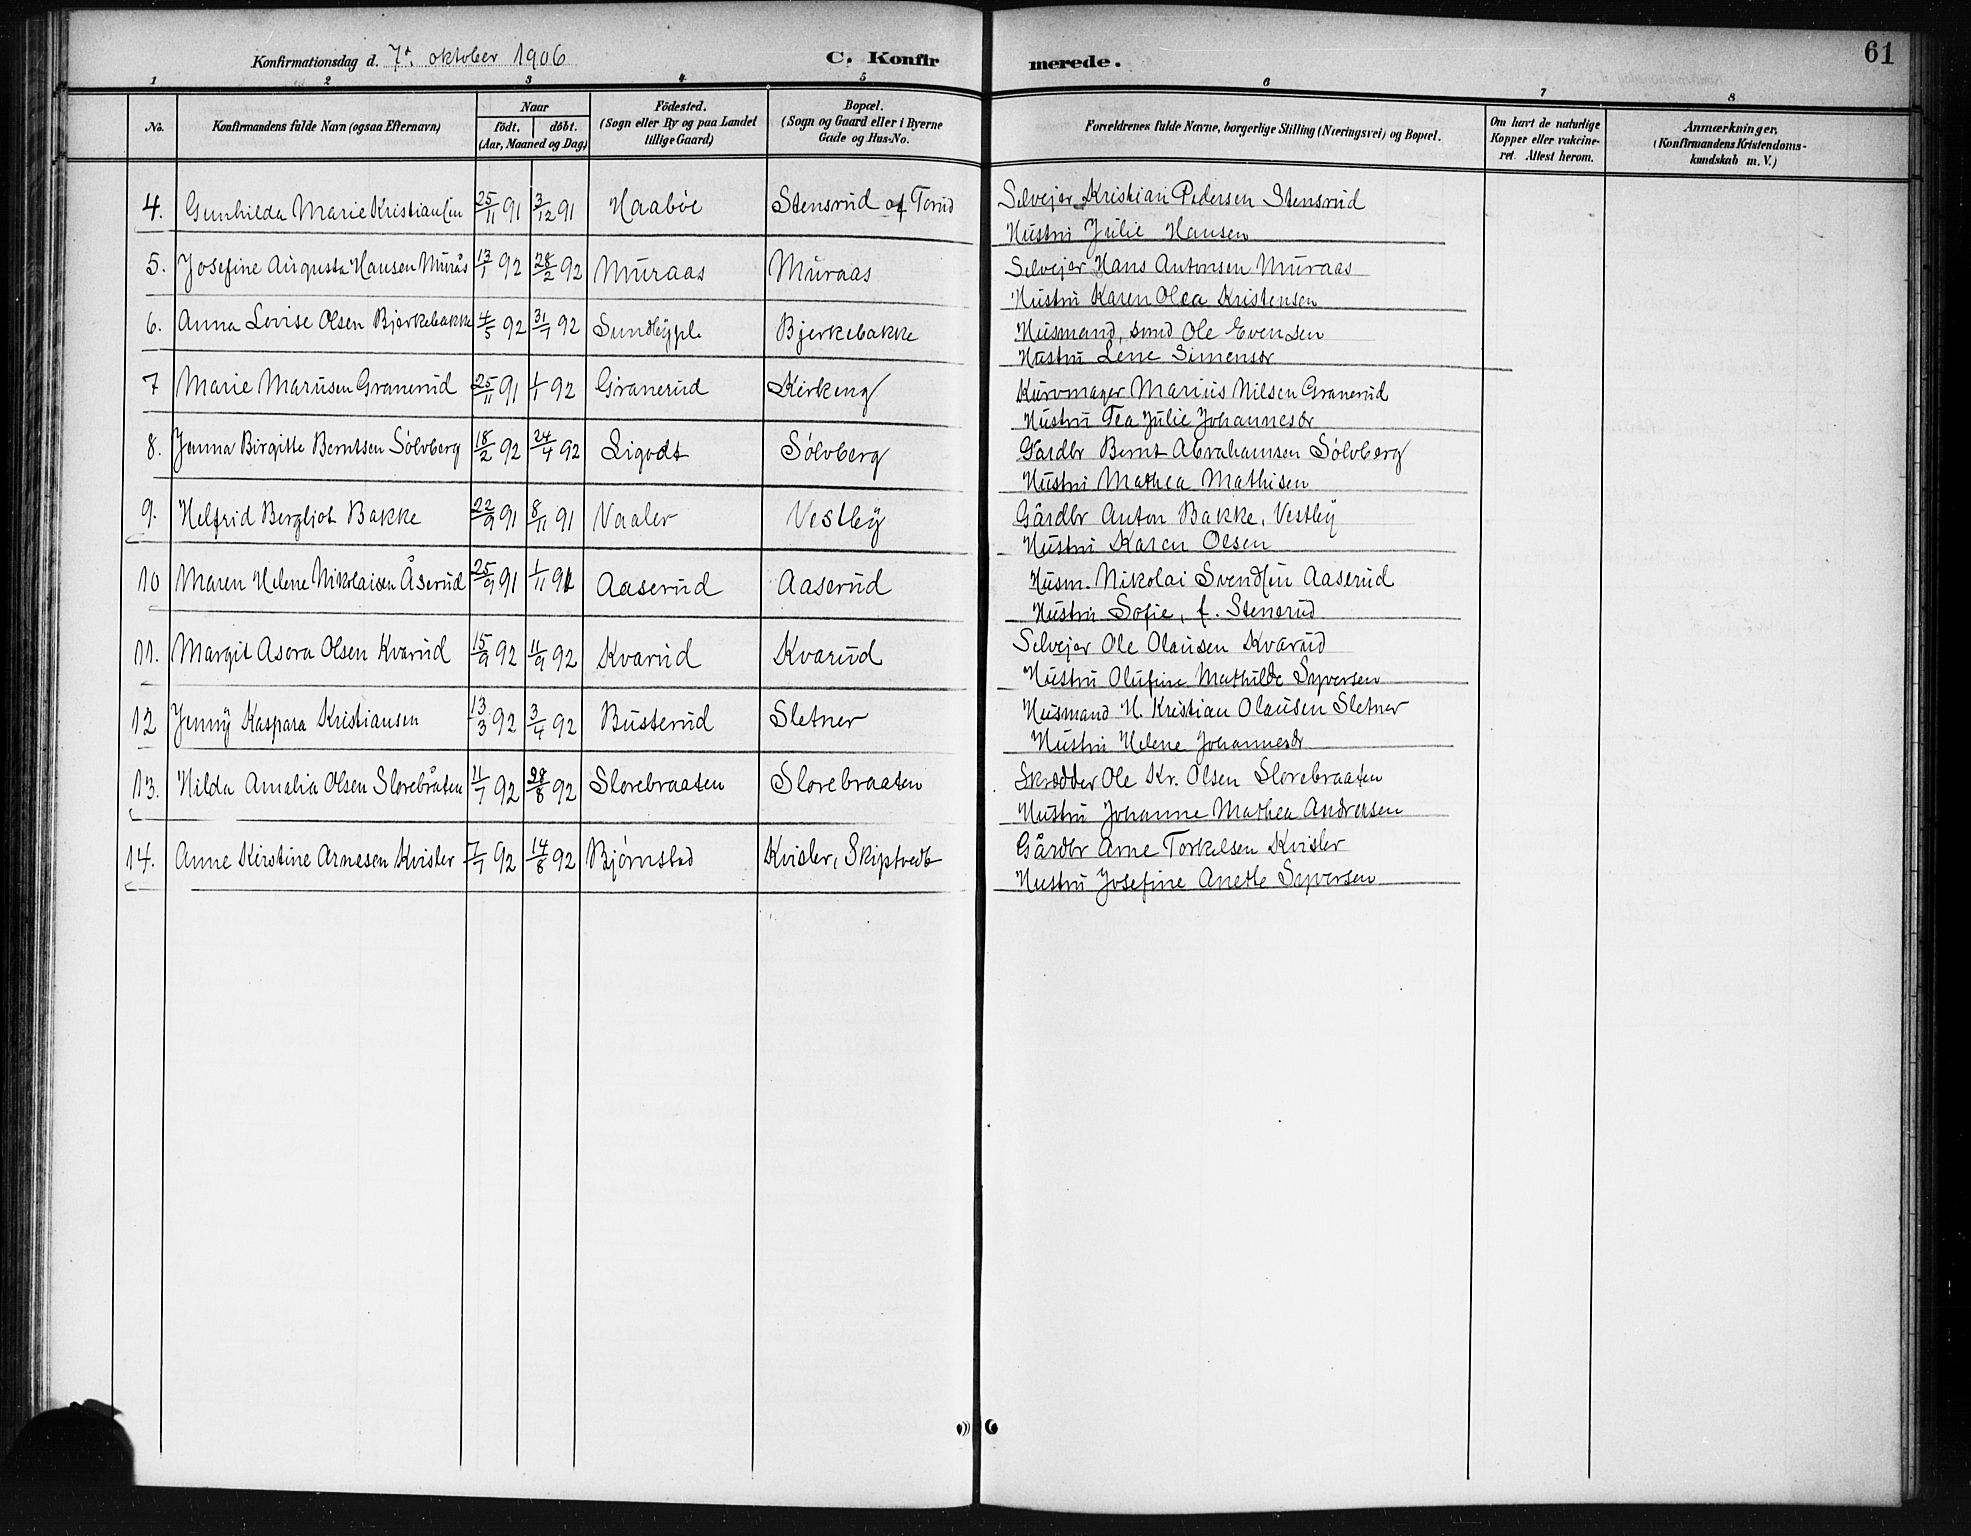 Konfirmationsdag d. 7de oktober 1906
C. Konfir
merede.
61
1 2 3 4 5 6 7 8
No.
Konfirmandens fulde Navn (ogsaa Efternavn)
Naar
födt. döbt.
(Aar, Maaned og Dag)
Födested.
(Sogn eller By og paa Landet
tillige Gaard)
Bopæl.
(Sogn og Gaard eller i Byerne
Gade og Hus-No.
Forældrenes fulde Navne, borgerlige Stilling (Næringsvei) og Bopæl.
Om havt de naturlige
Kopper eller vakcine-
ret. Attest herom.
Anmærkninger.
(Konfirmandens Kristendoms-
kundskab m. V.)
4. Gunhilda Marie Kristiansen 25/11 91 3/12 91 Haabøl Stensrud af Torud Selvejer Kristian Pedersen Stensrud
Hustru Julie Hansen
5. Josefine Augusta Hansen Murås 13/1 92 28/2 92 Muraas Muraas Selvejer Hans Antonsen Muraas
Hustru Karen Olea Kristensen
6. Anna Lovise Olsen Bjerkebakke 4/5 92 31/7 92 Sundbypl Bjerkebakke Husmand, smed Ole Evensen
Hustru Lene Simensdr
7 Marie Mariusen Granerud 25/11 91 1/1 92 Granerud Kirkeng Kurvmager Marius Nilsen Granerud
Hustru Tea Julie Johannesdr
8. Jenna Birgitte Berntsen Sölvberg 18/2 92 24/4 92 Ligodt Sölvberg Gardbr Bernt Abrahamsen Sölvberg
Hustru Mathea Mathisen
9. Helfrid Bergljot Bakke 22/9 91 8/11 91 Vaaler Vestby Gårdbr Anton Bakke, Vestby
Hustru Karen Olsen
10 Maren Helene Nikolaisen Åserud 25/9 91 1/11 91 Aaserud Aaserud Husm. Nikolai Svendsen Aaserud
Hustru Sofie, f. Stenerud
11. Margit Asora Olsen Kvarud 15/9 92 11/9 92 Kvarud Kvarud Selvejer Ole Olausen Kvarud
Hustru Olufine Mathilde Syversen
12 Jenny Kaspara Kristiansen 13/3 92 3/4 92 Busterud Sletner Husmand H. Kristian Olausen Sletner
Hustru Helene Johannesdr
13. Hilda Amalia Olsen Slorebråten 11/7 92 28/8 92 Slorebraaten Slorebraaten Skrædder Ole Kr. Olsen Slorebraaten
Hustru Johanne Mathea Andersen
14. Anne Kirstine Arnesen Kvisler 7/7 92 14/8 92 Bjørnstad Kvisler, Skiptvedt Gårdbr Arne Torkelsen Kvisler
Hustru Josefine Anette Syversen